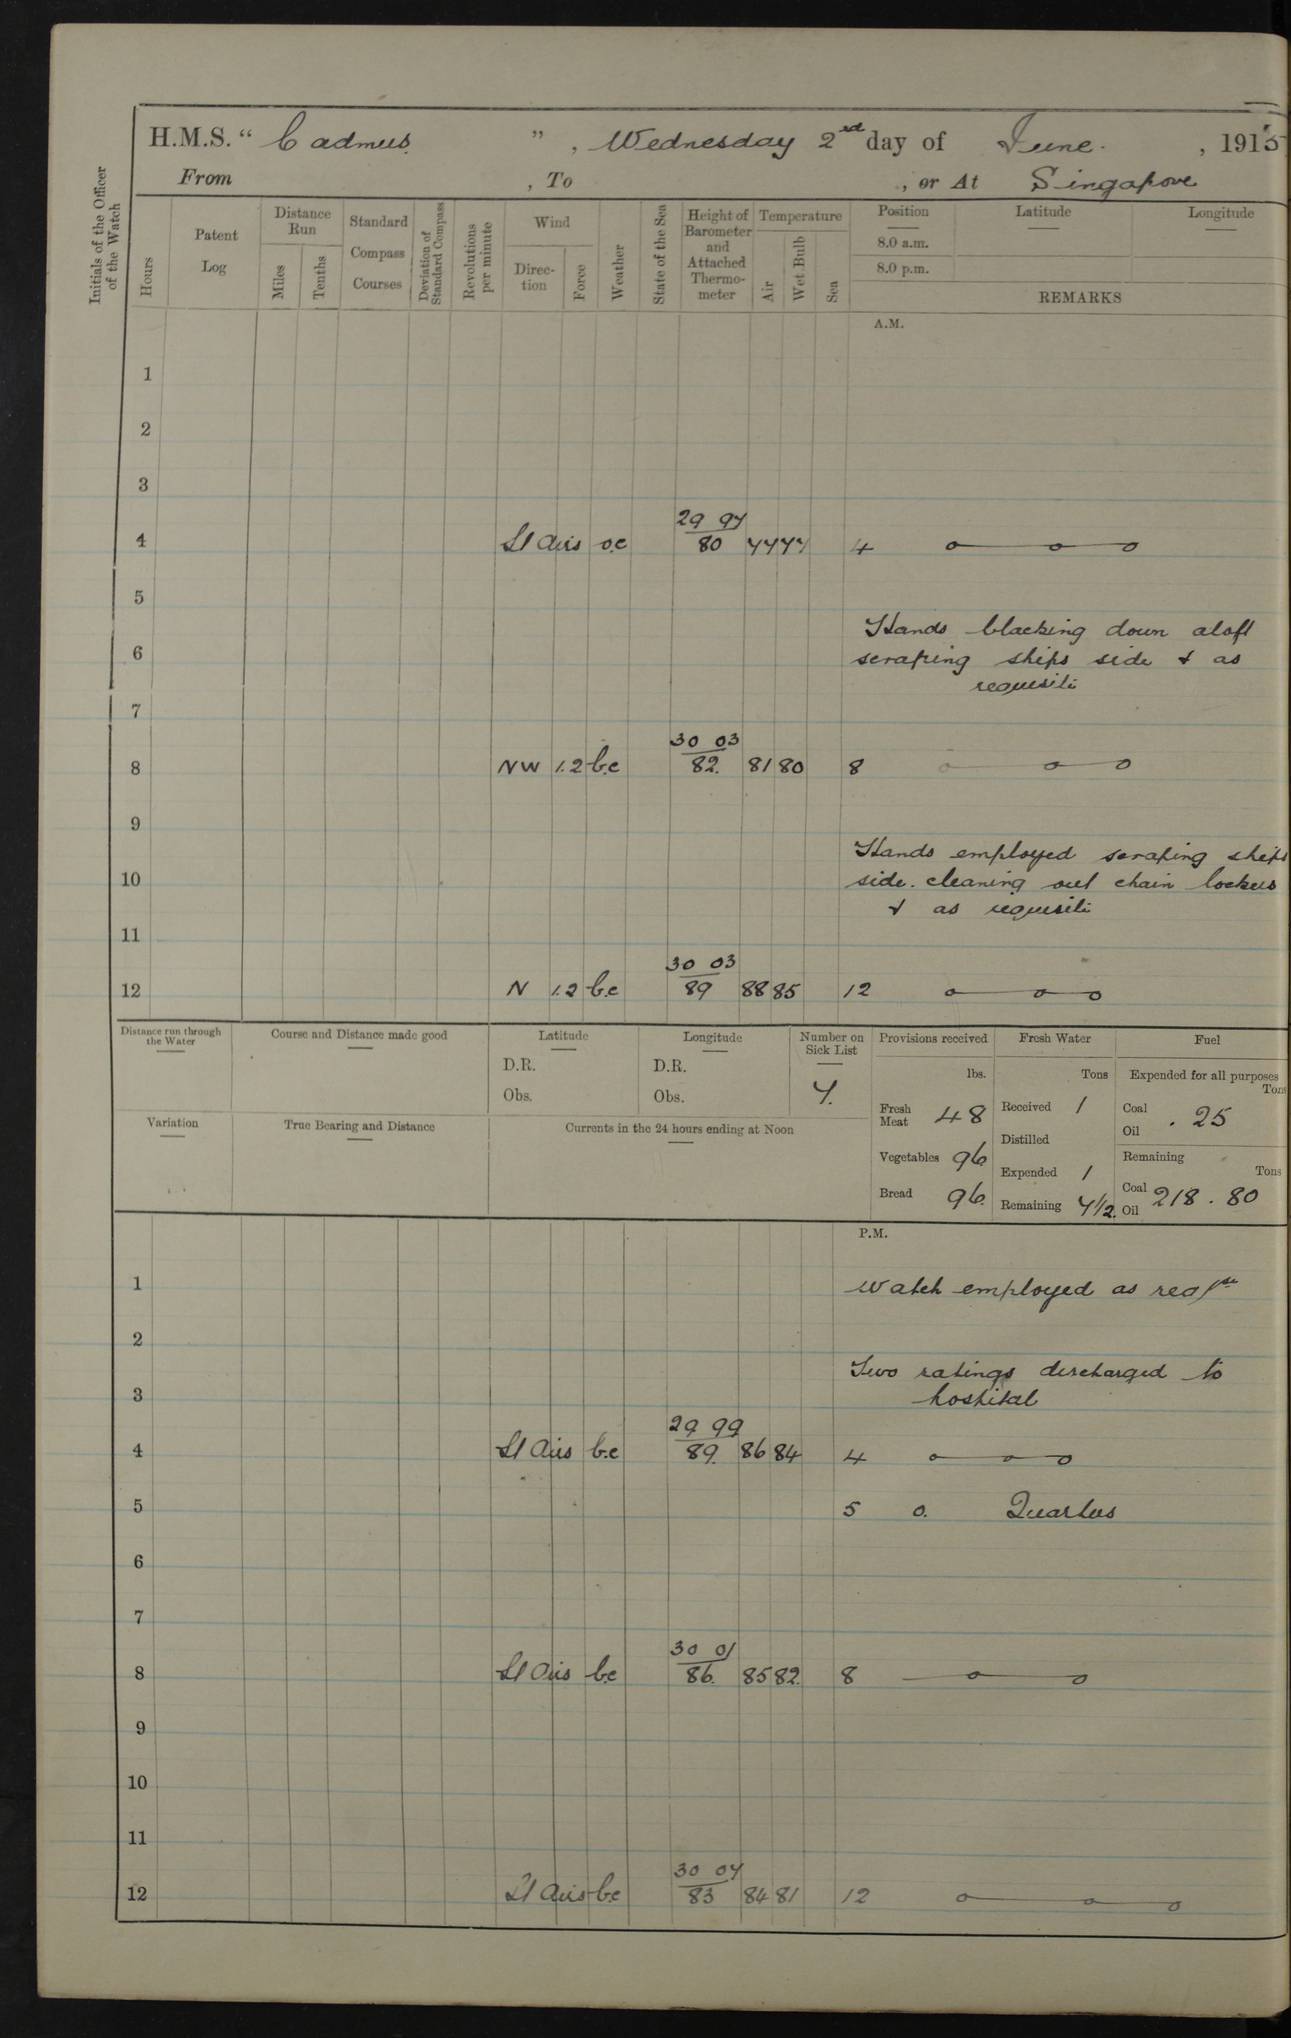 H.M.S. " Cadmus. ", Wednesday 2nd day of June. , 1915
From , To , or At Singapore
Initials of the Officer of the Watch
Hours
Patent Log
Distance Run
Miles
Tenths
Standard Compass Courses
Deviation of Standard Compass
Revolutions per minute
Wind
Direction
Force
Weather
State of the Sea
Height of Barometer and Attached Thermometer
Temperature
Air
Wet Bulb
Sea
Position
Latitude
Longitude
8.0 a.m.
8.0 p.m.
REMARKS
A.M.
1
2
3
29 97
4 Lt Airs o.c 80 77 77 4
5
Hands blacking down aloft
6 scraping ships side & as
requisite
7
30 03
8 NW 1.2 b.c 82. 81 80 8
9
Hands employed scraping ships
10 side. cleaning out chain lockers
& as requisite
11
30 03
12 N 1.2 b.c 89 88 85 12
Distance run through the Water
Course and Distance made good
Latitude
D.R.
Obs.
Longitude
D.R.
Obs.
Number on Sick List
7.
Provisions received
lbs.
Fresh Meat 48
Vegetables 96
Bread 96.
Fresh Water
Tons
Received 1
Distilled
Expended 1
Remaining 7 1/2.
Fuel
Expended for all purposes
Tons
Coal
Oil . 25
Remaining
Tons
Coal
Oil 218 . 80
Variation
True Bearing and Distance
Currents in the 24 hours ending at Noon
P.M.
1 Watch employed as
2
Two ratings discharged to
3 hospital
29 99
4 Lt Airs b.c 89. 86 84 4
5 5 0. Quarters
6
7
30 01
8 Lt Airs b.c 86. 85 82. 8
9
10
11
30 07
12 Lt Airs b.c 83 84 81 12